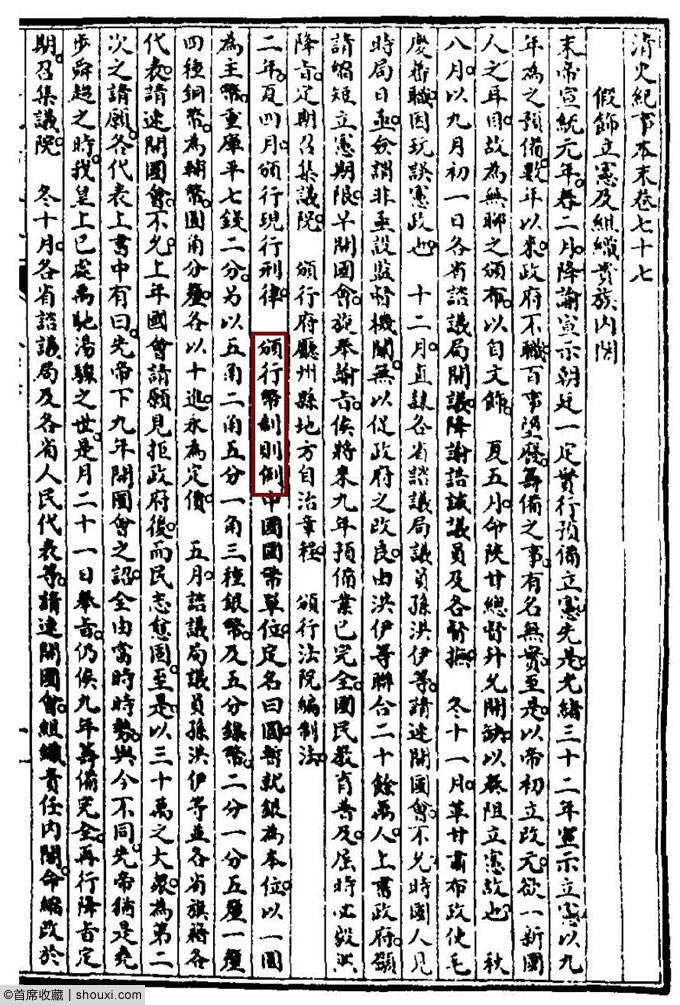 清史紀事本末卷七十七
假飾立憲及組織貴族內閣
末帝宣統元年春二月降諭宣示朝廷一定實行預備立憲先是光緒三十二年宣示立憲以九
年為之預備數年以來政府不職百事墮廢籌備之事有名無實至是以帝初立改元欲一新國
人之耳目故為無聊之頒布以自文飾 夏五月命陝甘總督升允開缺以奏阻立憲故也 秋
八月以九月初一日各省諮議局開議降諭誥誡議員及各督撫 冬十一月革甘肅布政使毛
慶蕃職因玩誤憲政也 十二月直隸各省諮議局議員孫洪伊等請速開國會不允時國人見
時局日亟僉謂非亟設監督機關無以促政府之改良由洪伊等聯合二十餘萬人上書政府籲
請縮短立憲期限早開國會旋奉諭旨俟將來九年預備業已完全國民教育普及屆時必毅然
降旨定期召集議院 頒行府廳州縣地方自治章程 頒行法院編制法
二年夏四月頒行現行刑律 頒行幣制則例中國國幣單位定名曰圓暫就銀為本位以一圓
為主幣重庫平七錢二分另以五角二角五分一角三種銀幣及五分鎳幣二分一分五釐一釐
四種銅幣為輔幣圓角分釐各以十進永為定價 五月諮議局議員孫洪伊等並各省旗籍各
代表請速開國會不允上年國會請願見拒政府後而民志愈固至是以三十萬之大衆為第二
次之請願各代表上書中有曰先帝下九年開國會之詔全由當時時勢與今不同先帝猶是堯
步舜趨之時我皇上已處禹馳湯驟之世是月二十一日奉旨仍俟九年籌備完全再行降旨定
期召集議院 冬十月各省諮議局及各省人民代表等請速開國會組織責任內閣命縮改於
©首席收藏 | shouxi.com